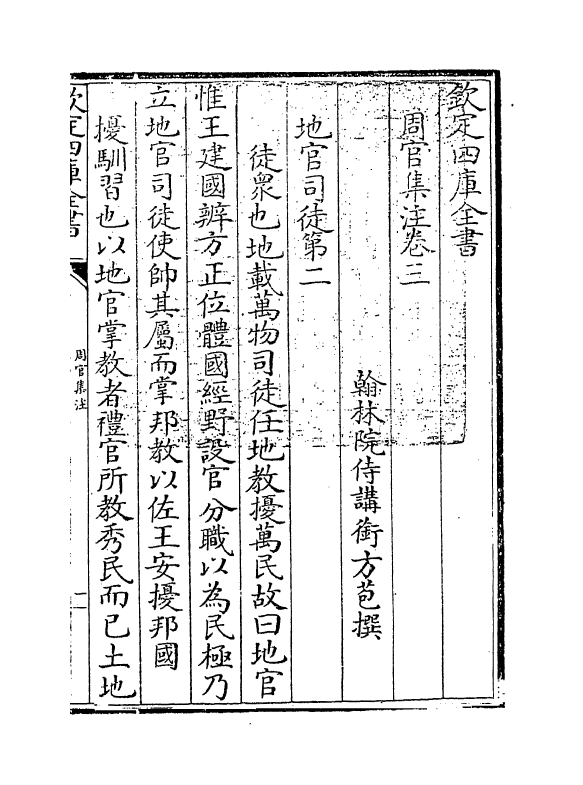 欽定四庫全書
周官集注卷三
翰林院侍講銜方苞撰
地官司徒第二
徒衆也地載萬物司徒任地教擾萬民故曰地官
惟王建國辨方正位體國經野設官分職以為民極乃
立地官司徒使帥其屬而掌邦教以佐王安擾邦國
擾馴習也以地官掌教者禮官所教秀民而已土地
欽定四庫全書
周官集注
一